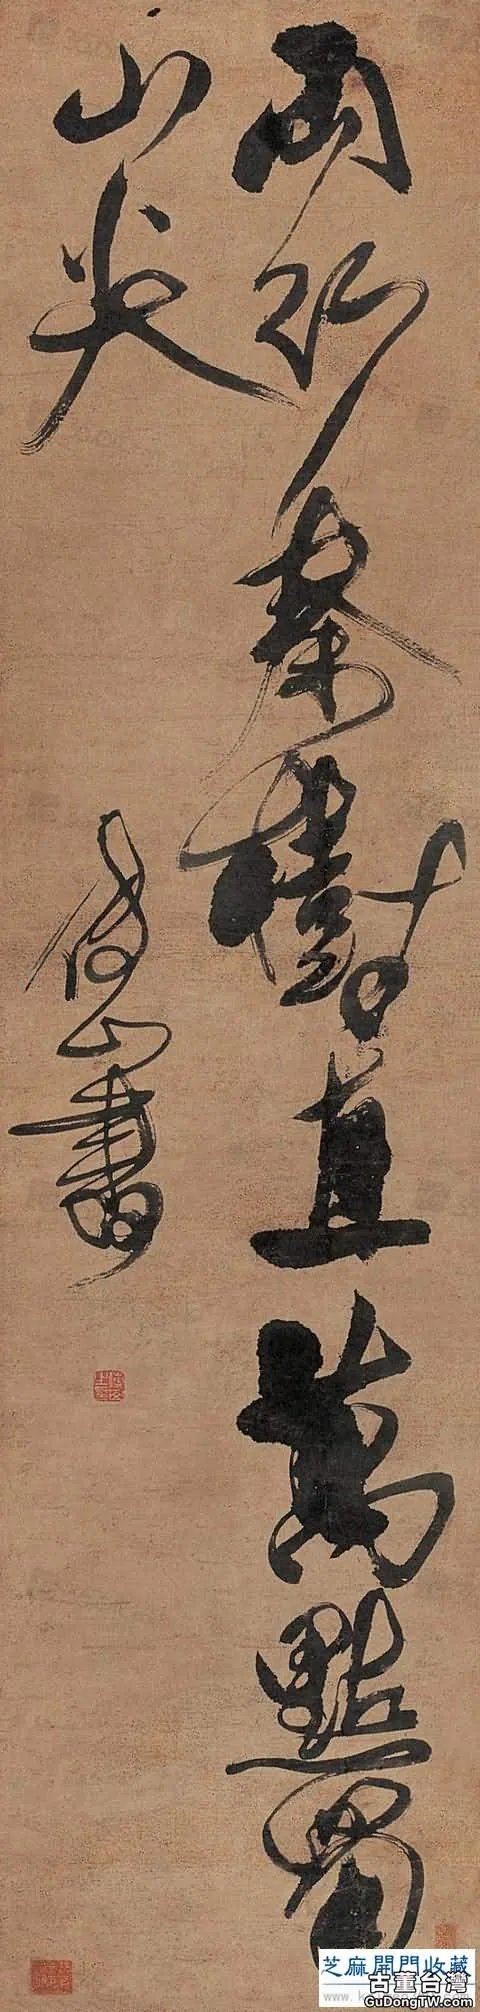 兩行秦樹直萬點蜀
山尖
傅山書
芝麻開門收藏
古董台灣
GuDongTW.com